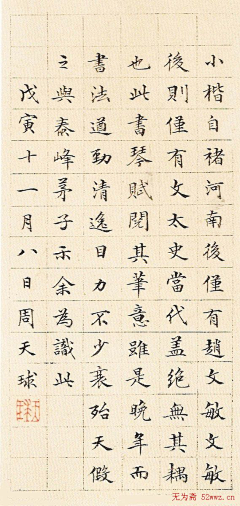 小楷自褚河南後僅有趙文敏文敏
後則僅有文太史當代蓋絕無其耦
也此書琴賦閱其筆意雖是晚年而
書法遒勁清逸目力不少衰殆天假
之與泰峰茅子示余為識此
戊寅十一月八日周天球
无为斋 52wwz.cn